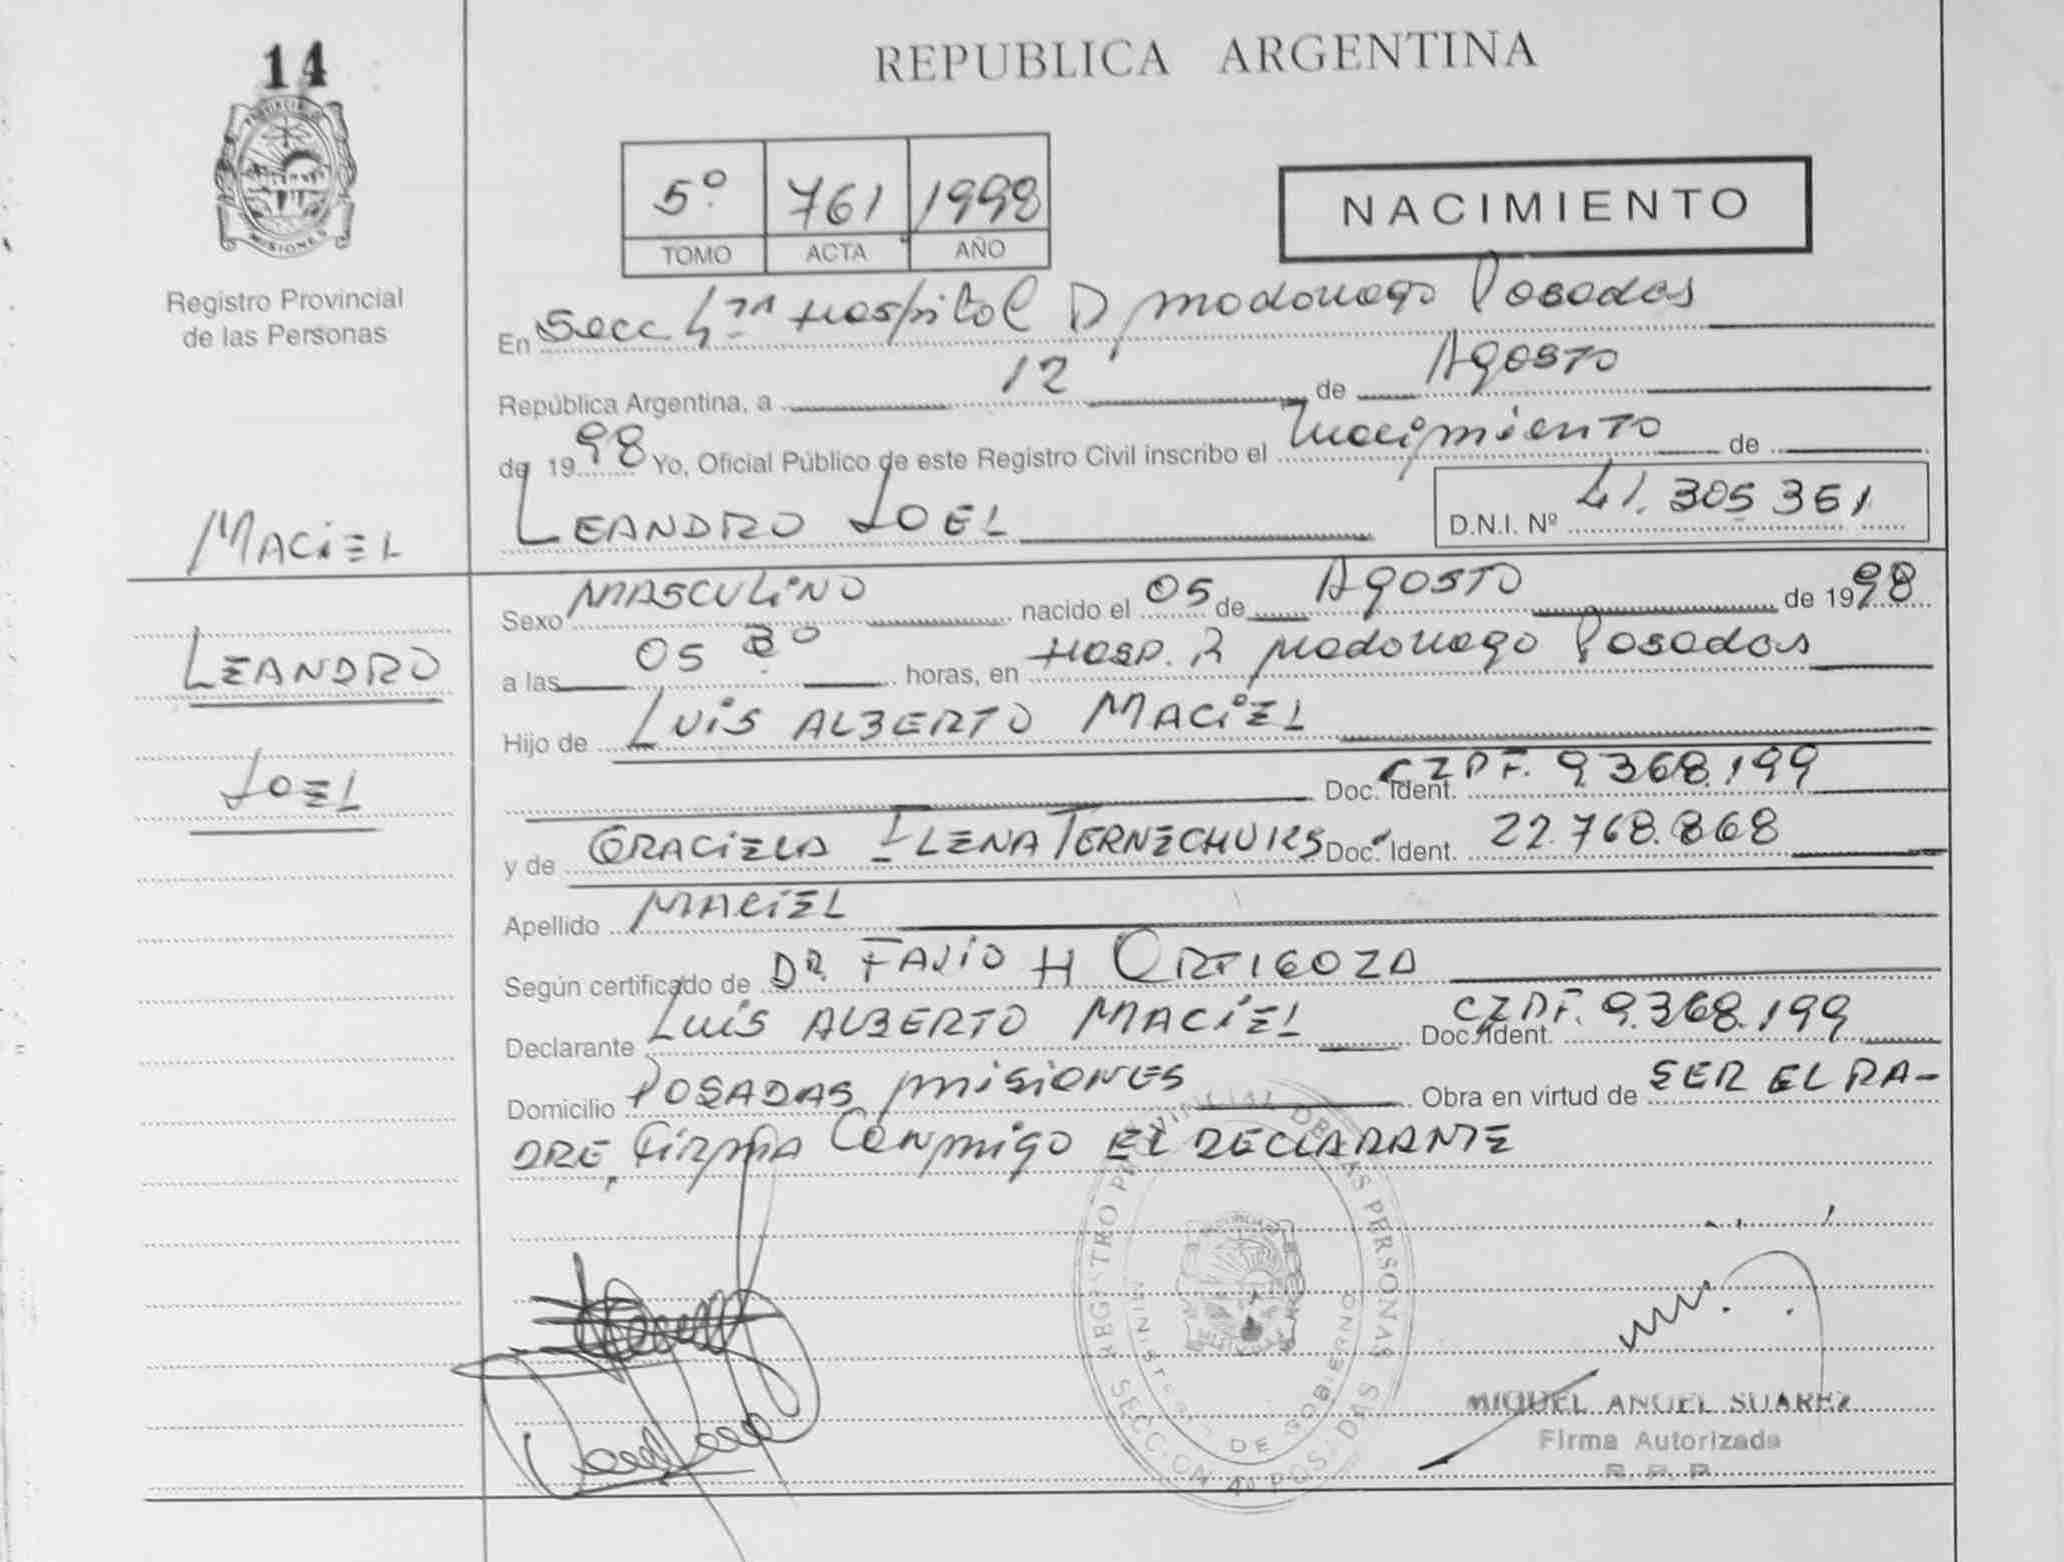 14
REPUBLICA ARGENTINA
PROVINCIA
MISIONES
Registro Provincial
de las Personas
5º 761 1998
TOMO ACTA AÑO
NACIMIENTO
En Secc 4ta Hospital D, Madariaga Posadas
República Argentina, a 12 de Agosto
de 1998 Yo, Oficial Público de este Registro Civil inscribo el Nacimiento de
MACIEL
LEANDRO JOEL D.N.I. Nº 41.305361
Sexo MASCULINO nacido el 05 de AGOSTO de 1998
LEANDRO
a las 05 30 horas, en Hosp. R Madariaga Posadas
Hijo de LUIS ALBERTO MACIEL
JOEL
Doc. Ident. CZPF. 9.368.199
y de GRACIELA ILENA TERNECHUKS Doc. Ident. 22.768.868
Apellido MACIEL
Según certificado de DR. FAVIO H ORTIGOZA
Declarante LUIS ALBERTO MACIEL Doc. Ident. CZPF. 9.368.199
Domicilio POSADAS MISIONES Obra en virtud de SER EL PA-
DRE, Firma Conmigo EL DECLARANTE
REGISTRO PROVINCIAL DE LAS PERSONAS
MINISTERIO DE GOBIERNO
SECCION 4a POSADAS
MIGUEL ANGEL SUAREZ
Firma Autorizada
R. P. P.